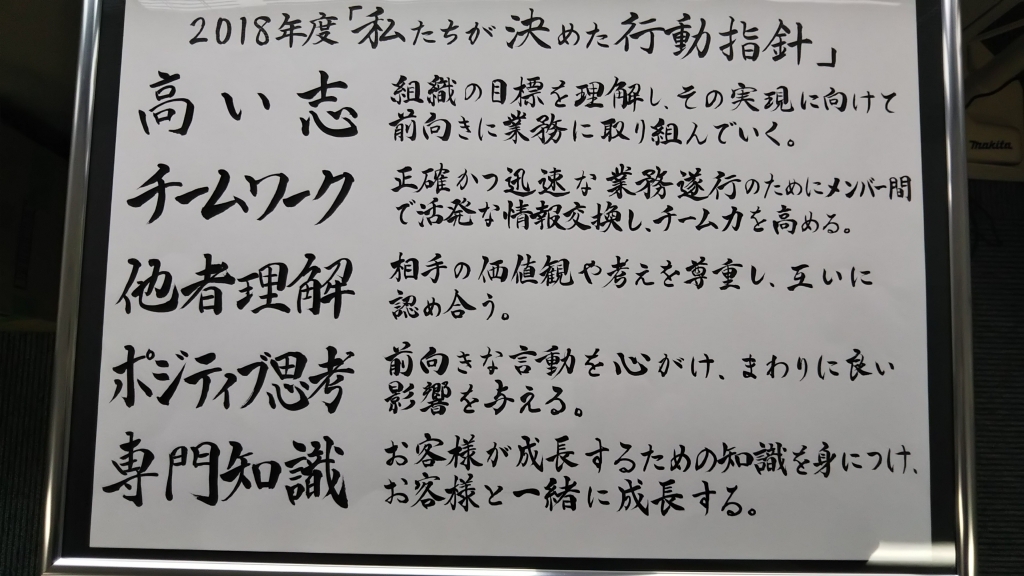 2018年度「私たちが決めた行動指針」
高い志
組織の目標を理解し、その実現に向けて
前向きに業務に取り組んでいく。
チームワーク
正確かつ迅速な業務遂行のためにメンバー間
で活発な情報交換し、チーム力を高める。
他者理解
相手の価値観や考えを尊重し、互いに
認め合う。
ポジティブ思考
前向きな言動を心がけ、まわりに良い
影響を与える。
専門知識
お客様が成長するための知識を身につけ、
お客様と一緒に成長する。
makita